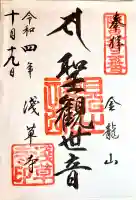 奉拝
金龍山
聖観世音
浅草寺
令和四年
十月十九日